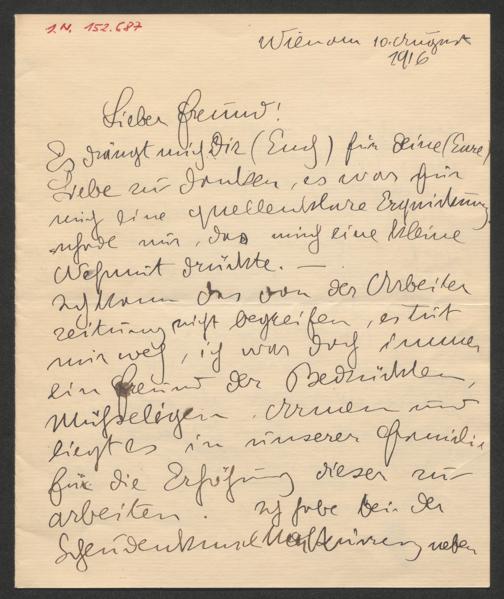 I.N. 152.687
Wien am 10. August
1916
Lieber Freund!
Es drängt mich Dir (Euch) für deine (Eure)
Liebe zu danken, es war für
mich eine quellenklare Erquickung
schade nur, das mich eine kleine
Wehmut drückte. —
Ich kann das von der Arbeiter
zeitung nicht begreifen, es tut
mir weh, ich war doch immer
ein Freund der Bedrückten,
Mühseligen Armen und
liegt es in unserer Familie
für die Erhöhung dieser zu
arbeiten. Ich habe bei der
neben